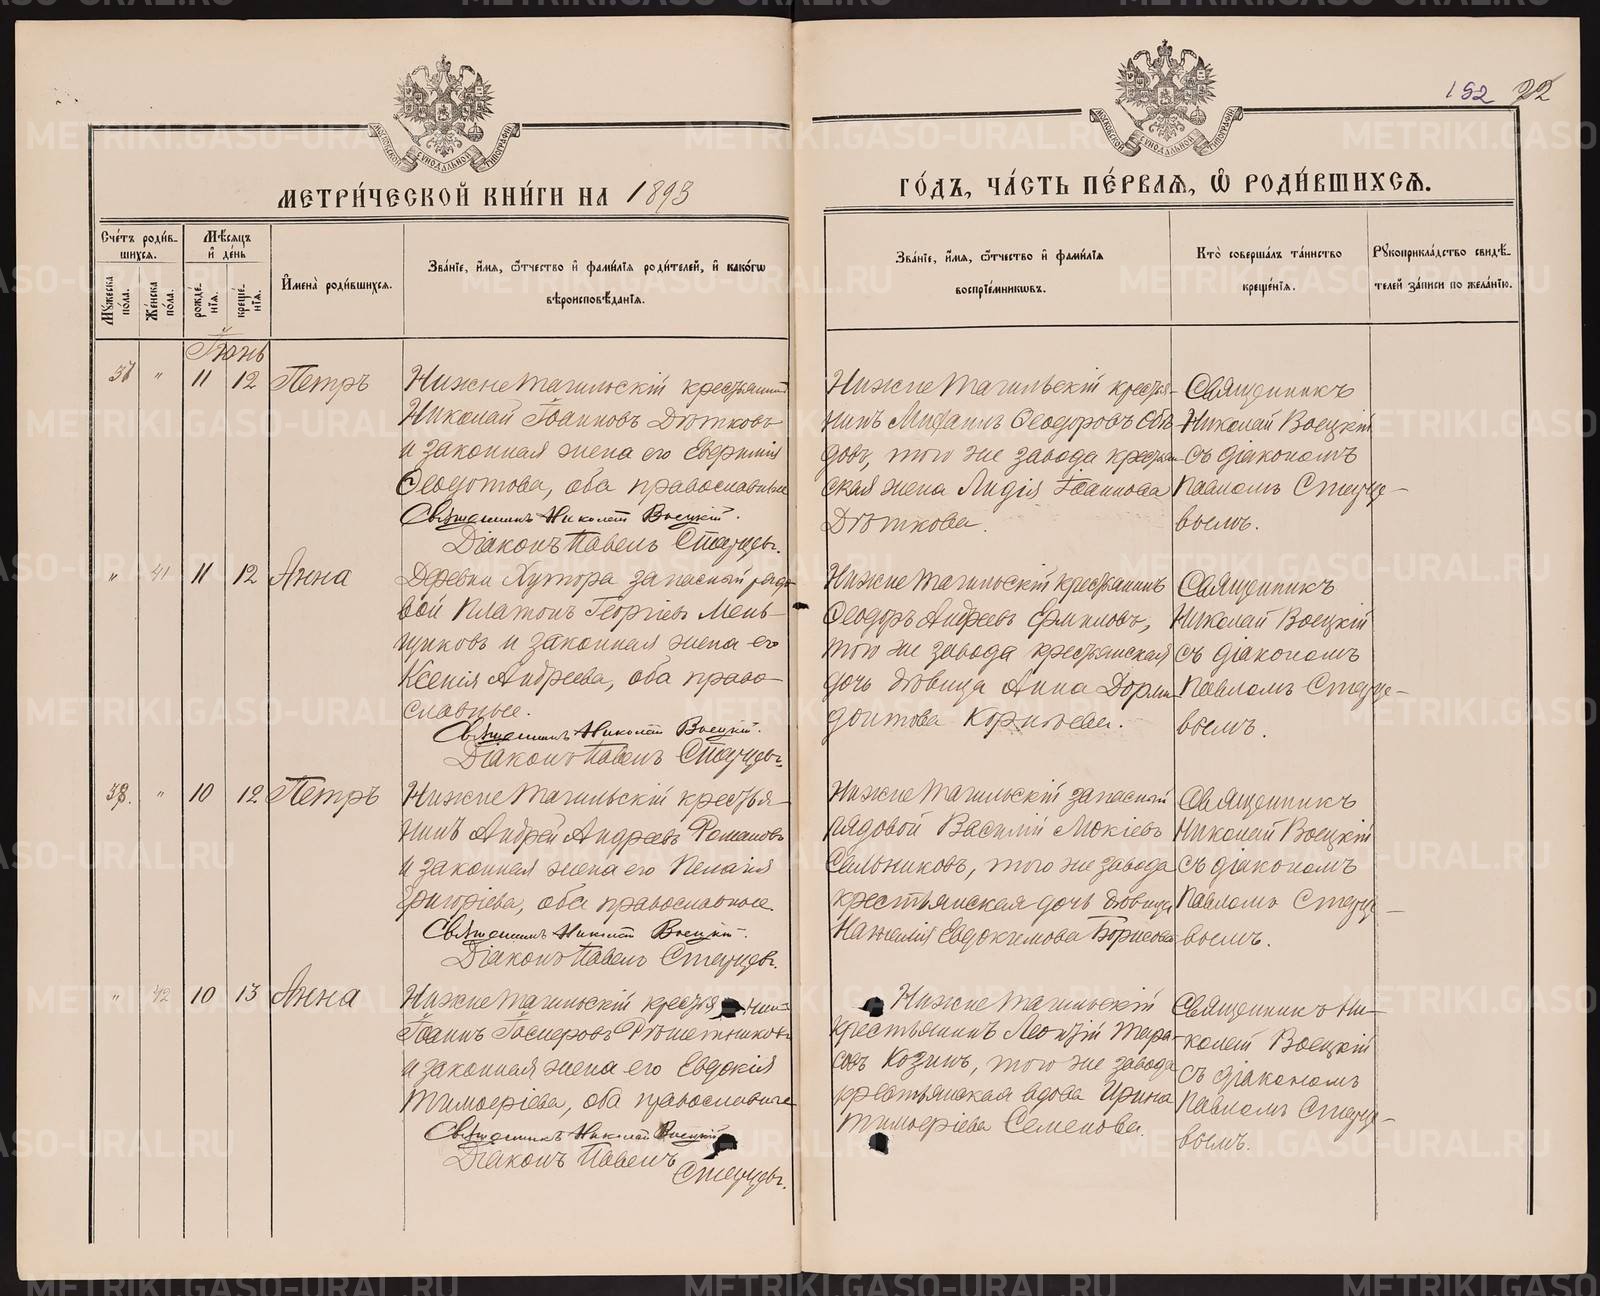 152 22
МЕТРИ́ЧЕСКОЙ КНИ́ГИ НА 1893
ГО́ДЪ, ЧА́СТЬ ПЕ́РВАѦ, Ѡ҆ РОДИ́ВШИХСѦ.
Сче́тъ роди́в-
шихсѧ.
Мꙋ́жеска по́ла.
Же́нска по́ла.
Мѣ́сѧцъ
и҆ де́нь
рожде́-
нїѧ.
креще́-
нїѧ.
И҆мена̀ роди́вшихсѧ.
Зва́нїе, и҆́мѧ, ѻ҆́тчество и҆ фами́лїѧ роди́телей, и҆ како́гѡ
вѣроисповѣ́данїѧ.
Зва́нїе, и҆́мѧ, ѻ҆́тчество и҆ фами́лїѧ
воспрїе́мникѡвъ.
Кто̀ соверша́лъ та́инство
креще́нїѧ.
Рꙋкоприкла́дство свидѣ́-
телей за́писи по жела́нїю.
Іюнь
37 " 11 12 Петръ
Нижне Тагильскій крестьянинъ
Николай Іоанновъ Дѣтковъ
и законная жена его Евфимія
Ѳеодотова, оба православные
Священникъ Николай Воецкій.
Діаконъ Павелъ Старцевъ.
Нижне Тагильскій крестья-
нинъ Михаилъ Ѳеодоровъ
довъ, того же завода крестьян
ская жена Лидія Іоаннова
Дѣткова.
Священникъ
Николай Воецкій
съ діакономъ
Павломъ Старце-
вымъ.
" 41 11 12 Анна
Деревни Хутора запасный рядо-
вой Платонъ Георгіевъ Мень-
щиковъ и законная жена его
Ксенія Андреева, оба право-
славные.
Священникъ Николай Воецкій.
Діаконъ Павелъ Старцевъ.
Нижне Тагильскій крестьянинъ
Ѳеодоръ Андреевъ Ермиловъ,
того же завода крестьянская
дочь дѣвица Анна Дорми-
донтова Корнѣева.
Священникъ
Николай Воецкій
съ діакономъ
Павломъ Старце-
вымъ.
38. " 10 12 Петръ
Нижне Тагильскій крестья-
нинъ Андрей Андреевъ Романовъ
и законная жена его Пелагія
Григоріева, оба православные.
Священникъ Николай Воецкій.
Діаконъ Павелъ Старцевъ.
Нижне Тагильскій запасный
рядовой Василій Мокіевъ
Сальниковъ, того же завода
крестьянская дочь дѣвица
Наталія Евдокимова Борисова
Священникъ
Николай Воецкій
съ діакономъ
Павломъ Старце-
вымъ.
" 42 10 13 Анна
Нижне Тагильскій крестьянинъ
Іоаннъ Рѣшетниковъ
и законная жена его Евдокія
Тимоѳеіева, оба православные
Священникъ Николай Воецкій
Діаконъ Павелъ
Старцевъ.
Нижне Тагильскій
крестьянинъ Леонтій Тара-
совъ Козинъ, того же завода
крестьянская вдова Ирина
Тимоѳеіева Семенова.
Священникъ Ни-
колай Воецкій
съ діакономъ
Павломъ Старце-
вымъ.
METRIKI.GASO-URAL.RU